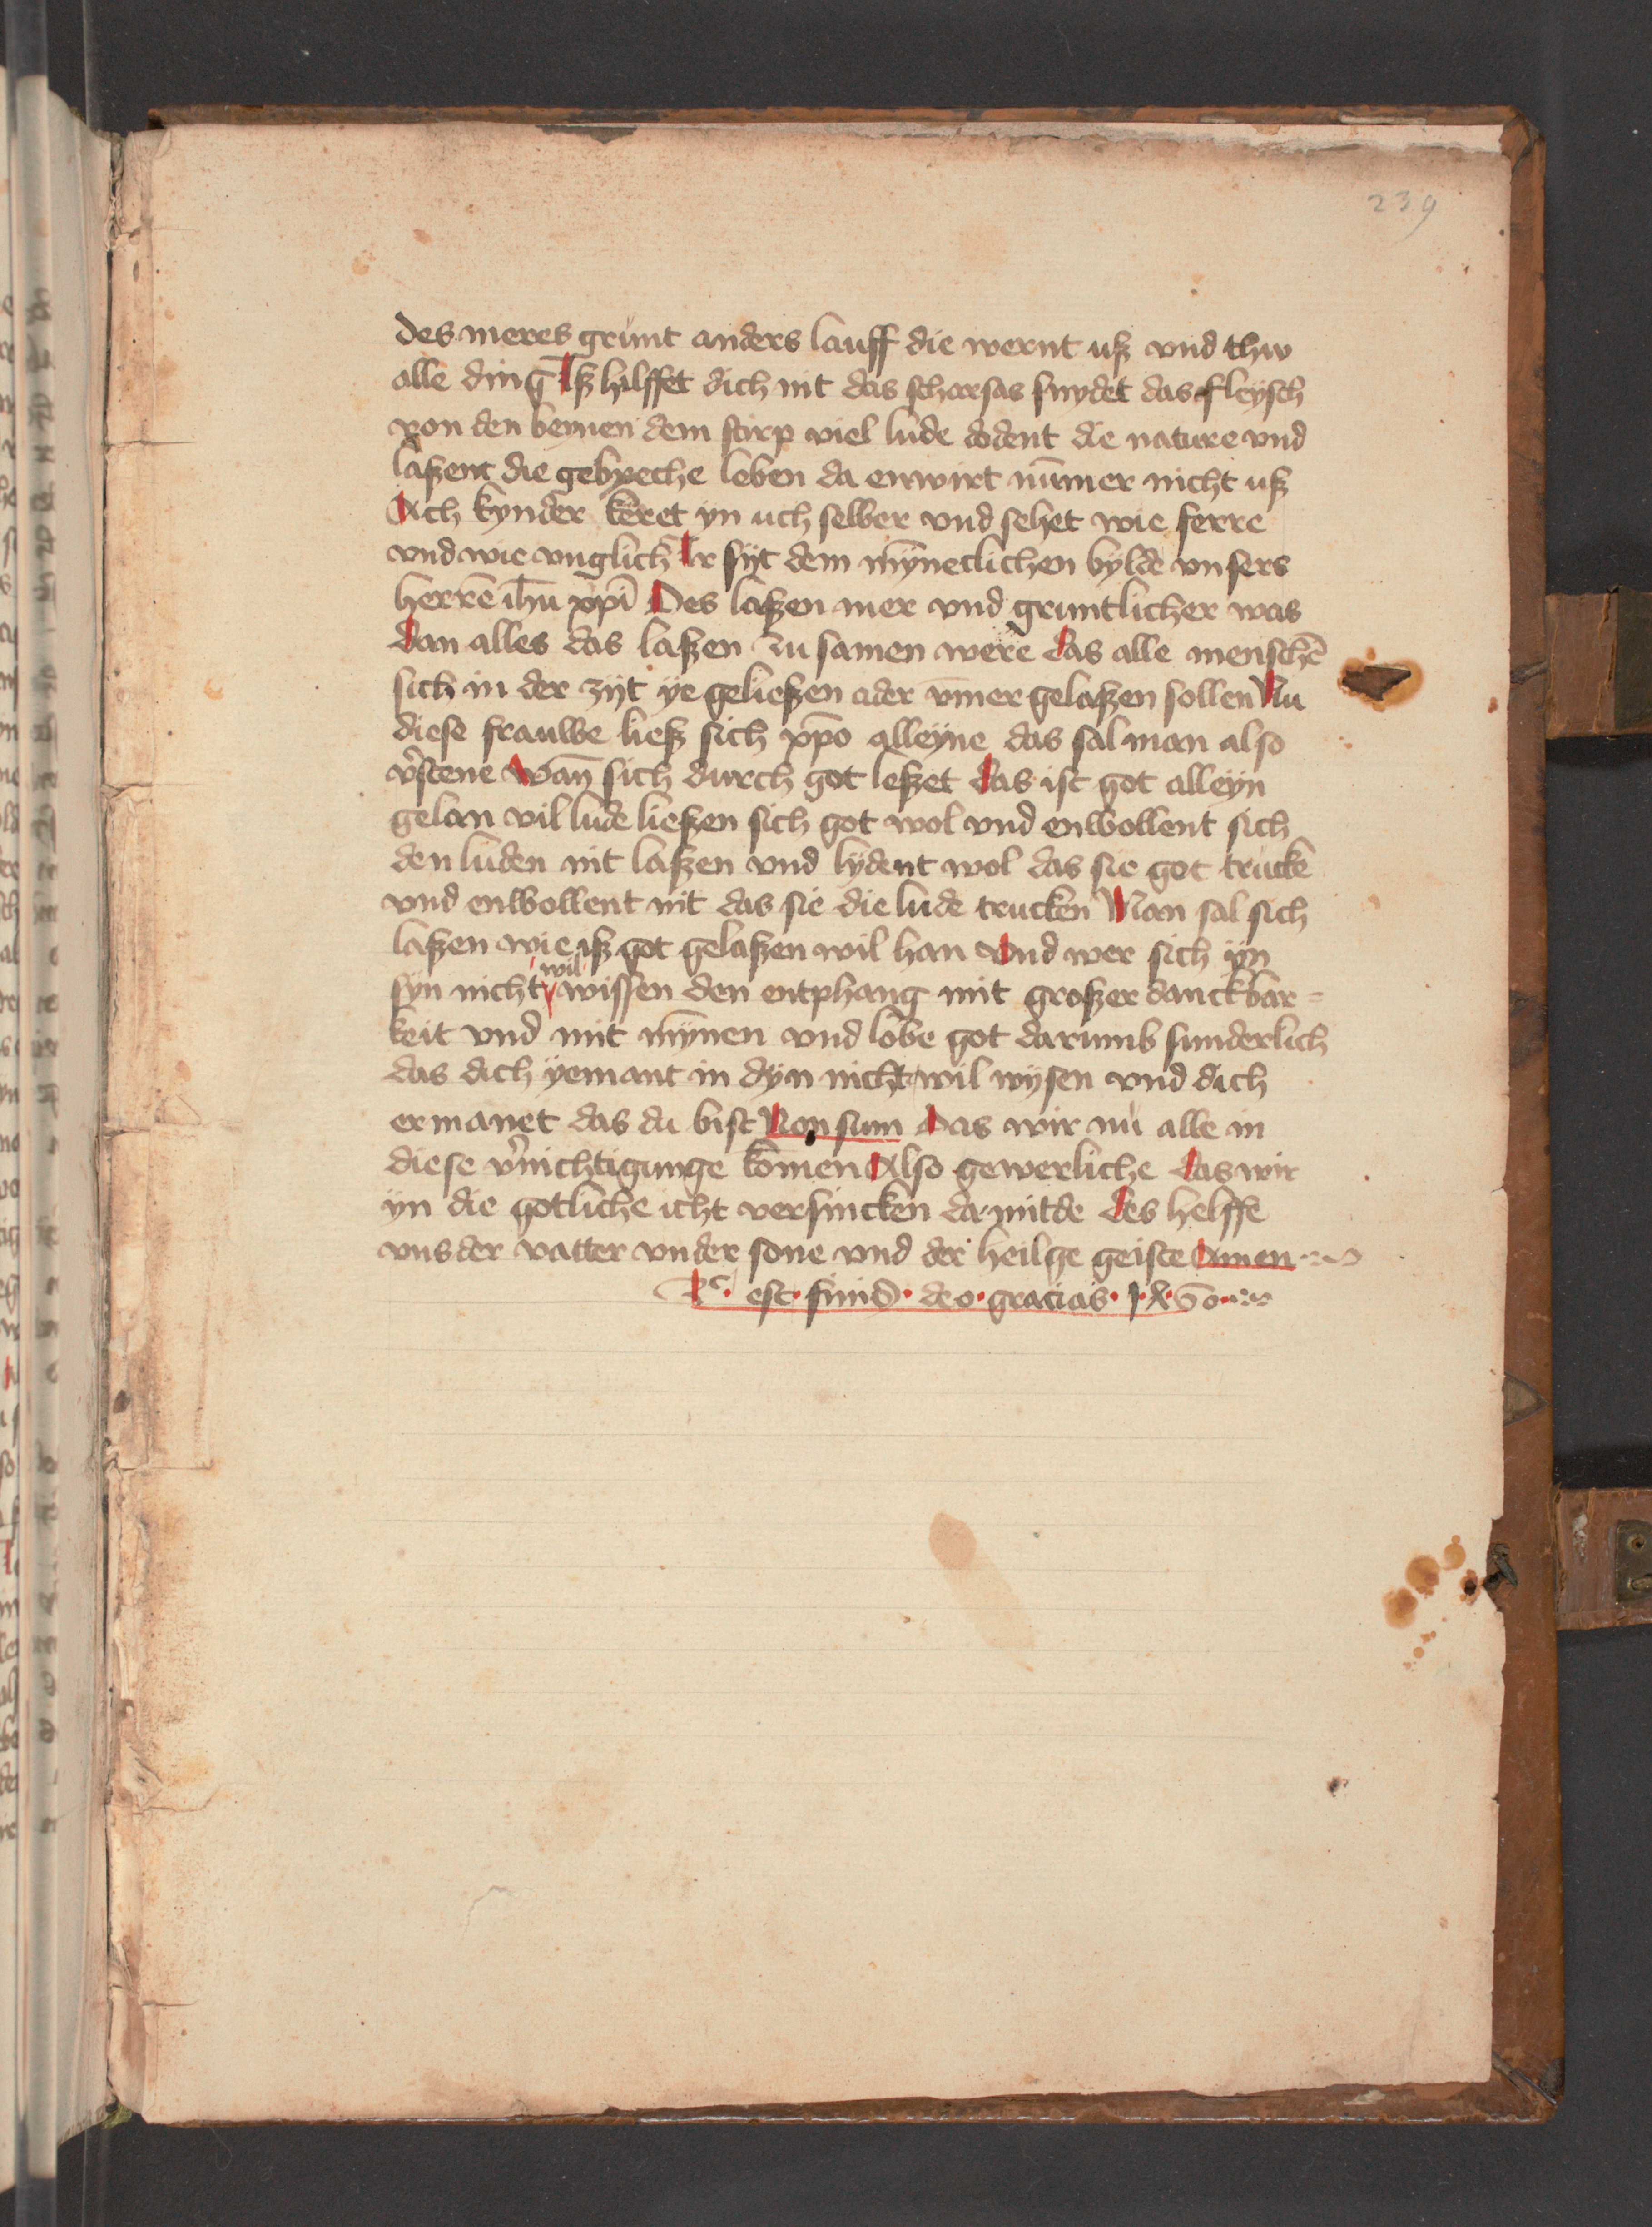 239
des meres grunt anders lauff die wernt uß vnd thw
alle ding Iß hilffet dich nit das scharsas snydet das fleysch
von den beynen dem stirp viel lude dodent die nature vnd
laßent die gebreche leben da enwirt nūmer nicht uß
Ach kynder keret yn uch selber vnd sehet wie ferre
vnd wie vnglich Ir sijt dem mȳneclichen bylde vnsers
herrē ihū xp̄i Des laßen mer vnd gruntlicher was
dan alles das laßen zu samen were das alle menschē
sich in der zijt ye geließen ader v̄mer gelaßen sollen Nu
diese frauwe ließ sich xp̄o alleyne das sal man also
v̾stene wan̄ sich durch got leßet das ist got alleyn
gelan vil lude ließen sich got wol vnd enwollent sich
den luden nit laßen vnd lydent wol das sie got trucke
vnd enwollent nit das sie die lude trucken Man sal sich
laßen wie iß got gelaßen wil han Vnd wer sich yn
wil
syn nicht wissen den entphang mit großer danckbar=
keit vnd mit mȳnen vnd lobe got darumb sunderlich
das dich yemant in dyn nicht wil wysen vnd dich
ermanet das du bist Non sum Das wir nu alle in
diese v̾nichtigunge kōmen Also gewerliche das wir
yn die gotliche icht versincken da mitde des helffe
vns der vatter vnder sone vnd der heilge geiste Amen
est finis deo gracias